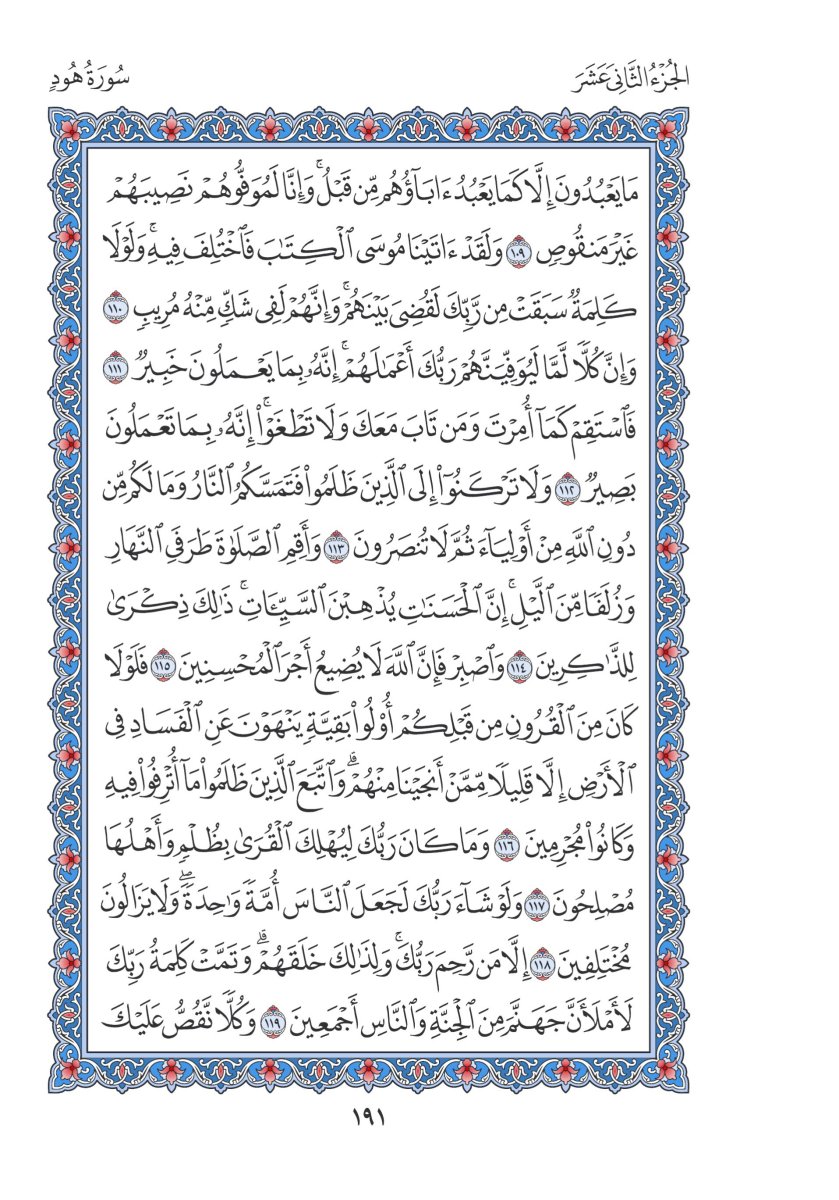 الجُزْءُ الثَّانِيَ عَشَرَ
سُورَةُ هُودٍ
مَا يَعْبُدُونَ إِلَّا كَمَا يَعْبُدُ ءَابَآؤُهُم مِّن قَبْلُ ۚ وَإِنَّا لَمُوَفُّوهُمْ نَصِيبَهُمْ
غَيْرَ مَنقُوصٍ ١٠٩ وَلَقَدْ ءَاتَيْنَا مُوسَى ٱلْكِتَٰبَ فَٱخْتُلِفَ فِيهِ ۚ وَلَوْلَا
كَلِمَةٌ سَبَقَتْ مِن رَّبِّكَ لَقُضِىَ بَيْنَهُمْ ۚ وَإِنَّهُمْ لَفِى شَكٍّ مِّنْهُ مُرِيبٍ ١١٠
وَإِنَّ كُلًّا لَّمَّا لَيُوَفِّيَنَّهُمْ رَبُّكَ أَعْمَٰلَهُمْ ۚ إِنَّهُۥ بِمَا يَعْمَلُونَ خَبِيرٌ ١١١
فَٱسْتَقِمْ كَمَآ أُمِرْتَ وَمَن تَابَ مَعَكَ وَلَا تَطْغَوْا۟ ۚ إِنَّهُۥ بِمَا تَعْمَلُونَ
بَصِيرٌ ١١٢ وَلَا تَرْكَنُوٓا۟ إِلَى ٱلَّذِينَ ظَلَمُوا۟ فَتَمَسَّكُمُ ٱلنَّارُ وَمَا لَكُم مِّن
دُونِ ٱللَّهِ مِنْ أَوْلِيَآءَ ثُمَّ لَا تُنصَرُونَ ١١٣ وَأَقِمِ ٱلصَّلَوٰةَ طَرَفَىِ ٱلنَّهَارِ
وَزُلَفًا مِّنَ ٱلَّيْلِ ۚ إِنَّ ٱلْحَسَنَٰتِ يُذْهِبْنَ ٱلسَّيِّـَٔاتِ ۚ ذَٰلِكَ ذِكْرَىٰ
لِلذَّٰكِرِينَ ١١٤ وَٱصْبِرْ فَإِنَّ ٱللَّهَ لَا يُضِيعُ أَجْرَ ٱلْمُحْسِنِينَ ١١٥ فَلَوْلَا
كَانَ مِنَ ٱلْقُرُونِ مِن قَبْلِكُمْ أُو۟لُوا۟ بَقِيَّةٍ يَنْهَوْنَ عَنِ ٱلْفَسَادِ فِى
ٱلْأَرْضِ إِلَّا قَلِيلًا مِّمَّنْ أَنجَيْنَا مِنْهُمْ ۗ وَٱتَّبَعَ ٱلَّذِينَ ظَلَمُوا۟ مَآ أُتْرِفُوا۟ فِيهِ
وَكَانُوا۟ مُجْرِمِينَ ١١٦ وَمَا كَانَ رَبُّكَ لِيُهْلِكَ ٱلْقُرَىٰ بِظُلْمٍ وَأَهْلُهَا
مُصْلِحُونَ ١١٧ وَلَوْ شَآءَ رَبُّكَ لَجَعَلَ ٱلنَّاسَ أُمَّةً وَٰحِدَةً ۖ وَلَا يَزَالُونَ
مُخْتَلِفِينَ ١١٨ إِلَّا مَن رَّحِمَ رَبُّكَ ۚ وَلِذَٰلِكَ خَلَقَهُمْ ۗ وَتَمَّتْ كَلِمَةُ رَبِّكَ
لَأَمْلَأَنَّ جَهَنَّمَ مِنَ ٱلْجِنَّةِ وَٱلنَّاسِ أَجْمَعِينَ ١١٩ وَكُلًّا نَّقُصُّ عَلَيْكَ
١٩١